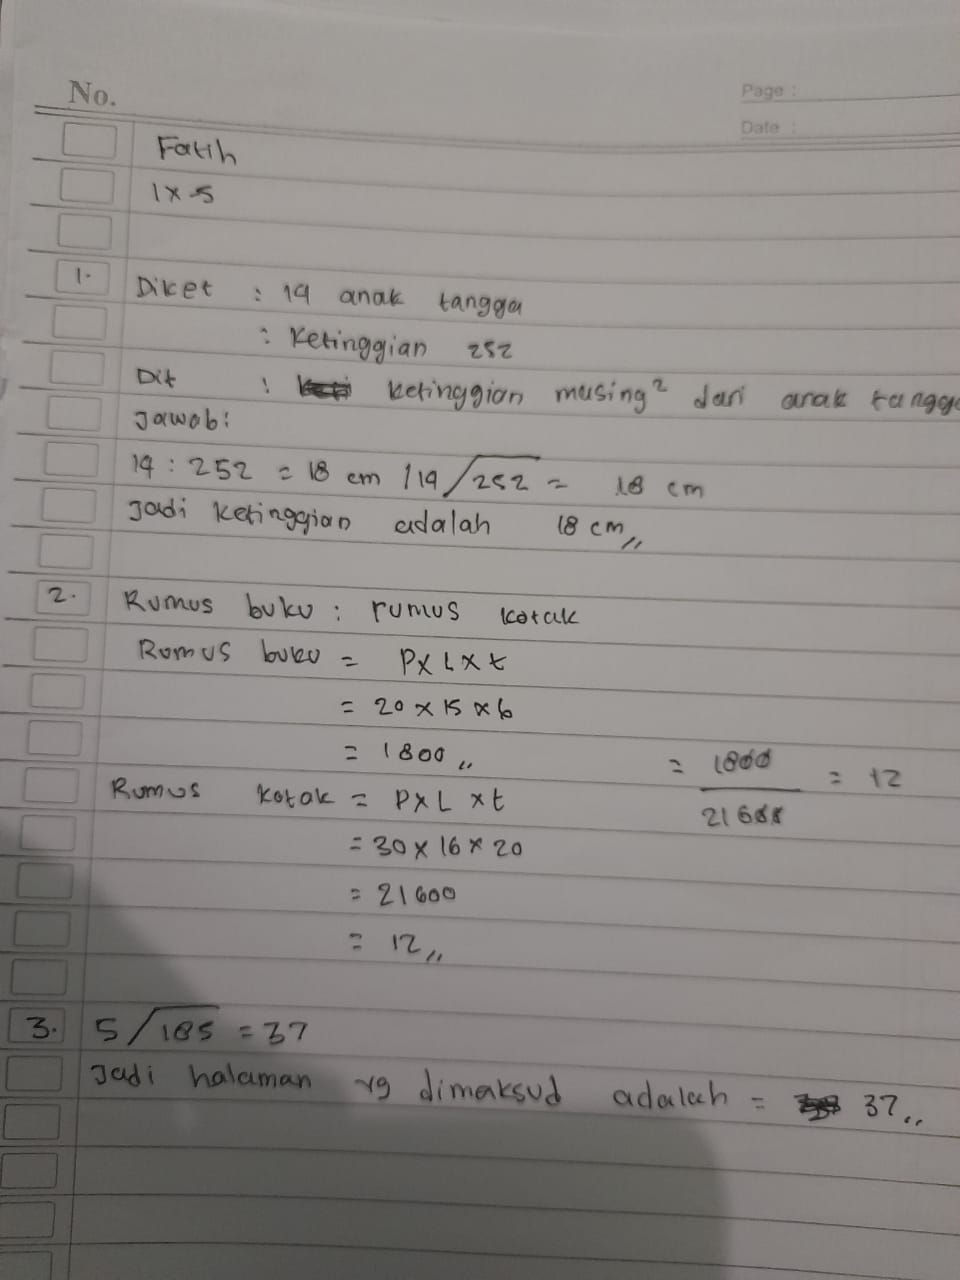 No.
Page :
Date :
Fatih
IX-5
1. Diket : 14 anak tangga
: Ketinggian 252
Dit : ketinggian masing² dari anak tangga
Jawab:
14 : 252 = 18 cm / 14√252 = 18 cm
Jadi ketinggian adalah 18 cm,,
2. Rumus buku : rumus kotak
Rumus buku = P x L x t
= 20 x 15 x 6
= 1800,,
= 1800/21600 = 12
Rumus kotak = P x L x t
= 30 x 16 x 20
= 21600
= 12,,
3. 5√185 = 37
Jadi halaman yg dimaksud adalah = 37,,